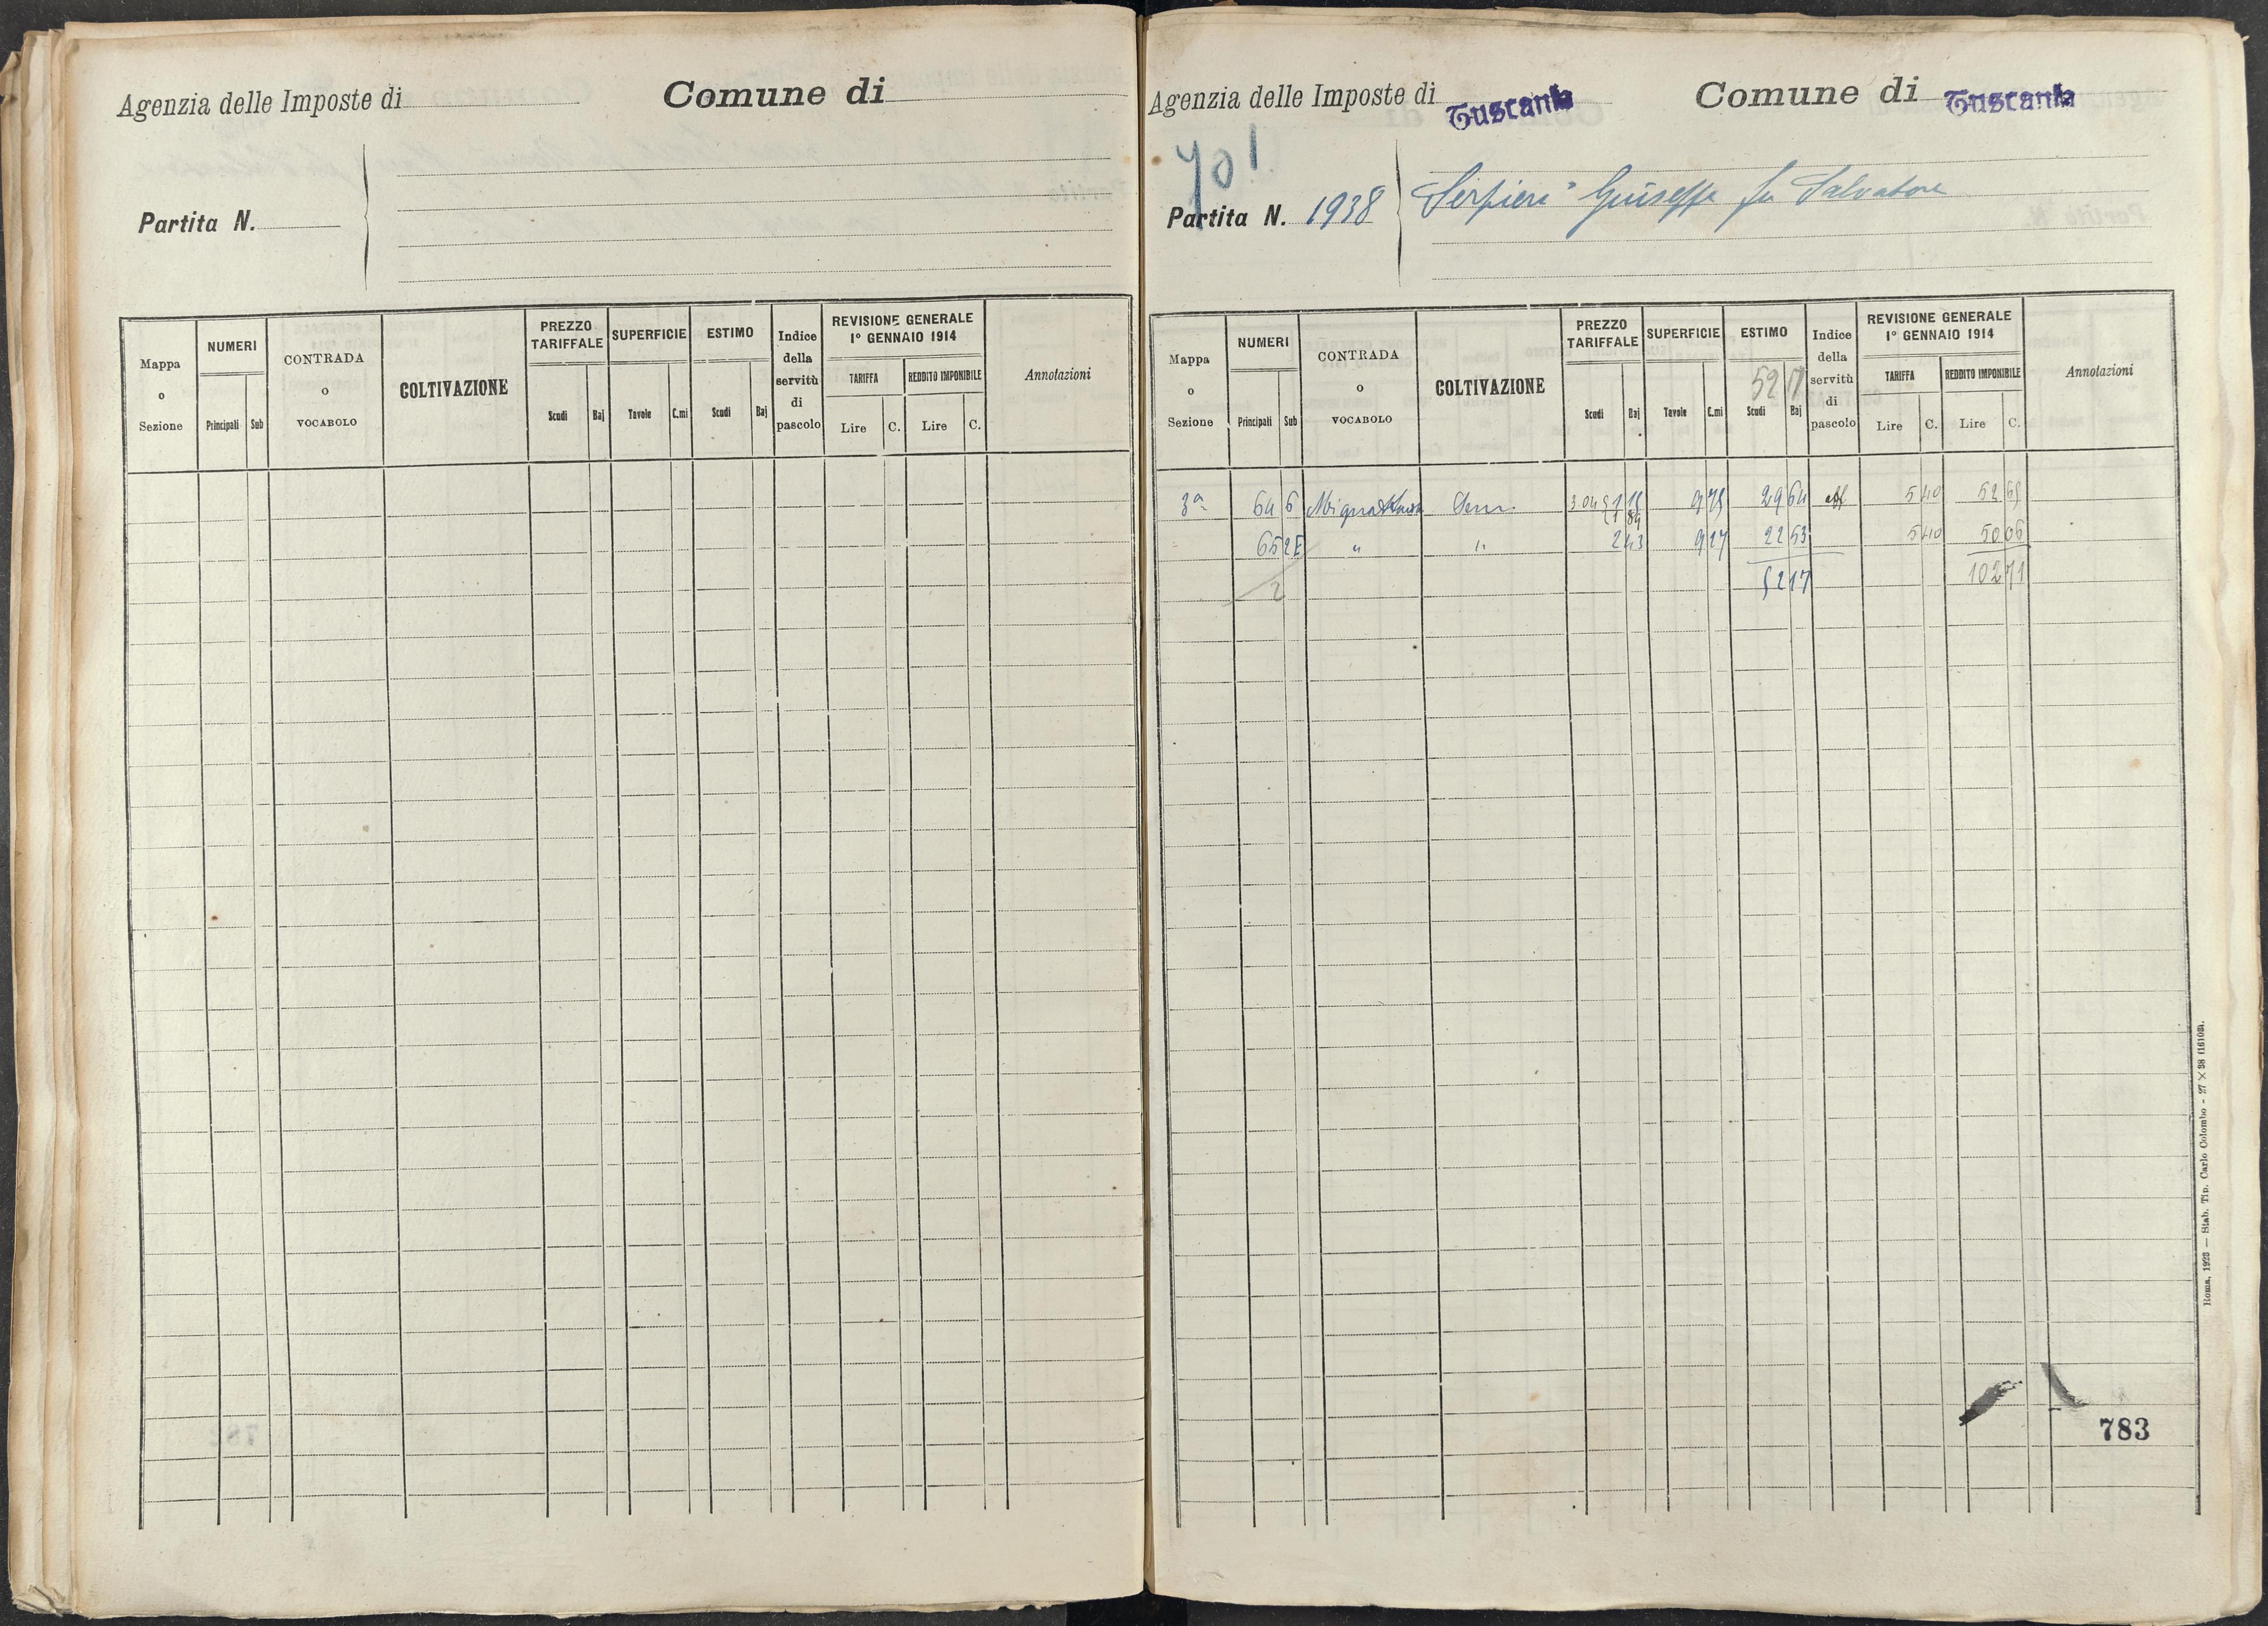 Agenzia delle Imposte di
Comune di
Partita N.
Mappa o Sezione
NUMERI
Principali
Sub
CONTRADA o VOCABOLO
COLTIVAZIONE
PREZZO TARIFFALE
Scudi
Baj
SUPERFICIE
Tavole
C.mi
ESTIMO
Scudi
Baj
Indice della servitù di pascolo
REVISIONE GENERALE
1° GENNAIO 1914
TARIFFA
Lire
C.
REDDITO IMPONIBILE
Lire
C.
Annotazioni
Agenzia delle Imposte di Tuscania
Comune di Tuscania
701
Partita N. 1938
Serpieri Giuseppe fu Salvatore
Mappa o Sezione
NUMERI
Principali
Sub
CONTRADA o VOCABOLO
COLTIVAZIONE
PREZZO TARIFFALE
Scudi
Baj
SUPERFICIE
Tavole
C.mi
ESTIMO
52 17
Scudi
Baj
Indice della servitù di pascolo
REVISIONE GENERALE
1° GENNAIO 1914
TARIFFA
Lire
C.
REDDITO IMPONIBILE
Lire
C.
Annotazioni
3ª 64 6 Sem. 3.04 9 75 29 64 aff 5 40 52 65
65 2E " " 2 43 9 27 22 53 5 40 50 06
2 52 17 102 71
783
Roma, 1923 — Stab. Tip. Carlo Colombo - 27 × 38 (16108).